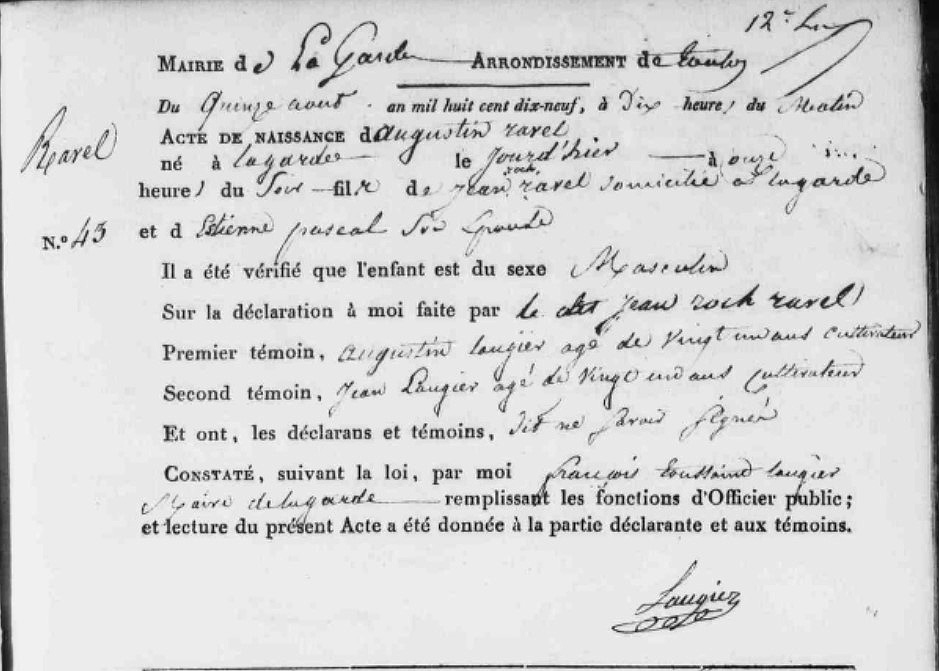 12e
Mairie de La Garde Arrondissement de toulon
Du Quinze aout an mil huit cent dix-neuf, à Dix heures du Matin
Ravel
Acte de naissance d'augustin ravel
né à lagarde le Jourd'hier à onze
heures du Soir fils de jean roch ravel domicilié a lagarde
N.º 43
et d Estienne pascal Son Epouse
Il a été vérifié que l'enfant est du sexe Masculin
Sur la déclaration à moi faite par le dit jean roch ravel
Premier témoin, augustin laugier agé de vingt un ans cultivateur
Second témoin, jean Laugier agé de vingt un ans cultivateur
Et ont, les déclarans et témoins, dit ne savoir signér
Constaté, suivant la loi, par moi françois toussaint laugier
Maire de lagarde remplissant les fonctions d'Officier public;
et lecture du présent Acte a été donnée à la partie déclarante et aux témoins.
Laugier